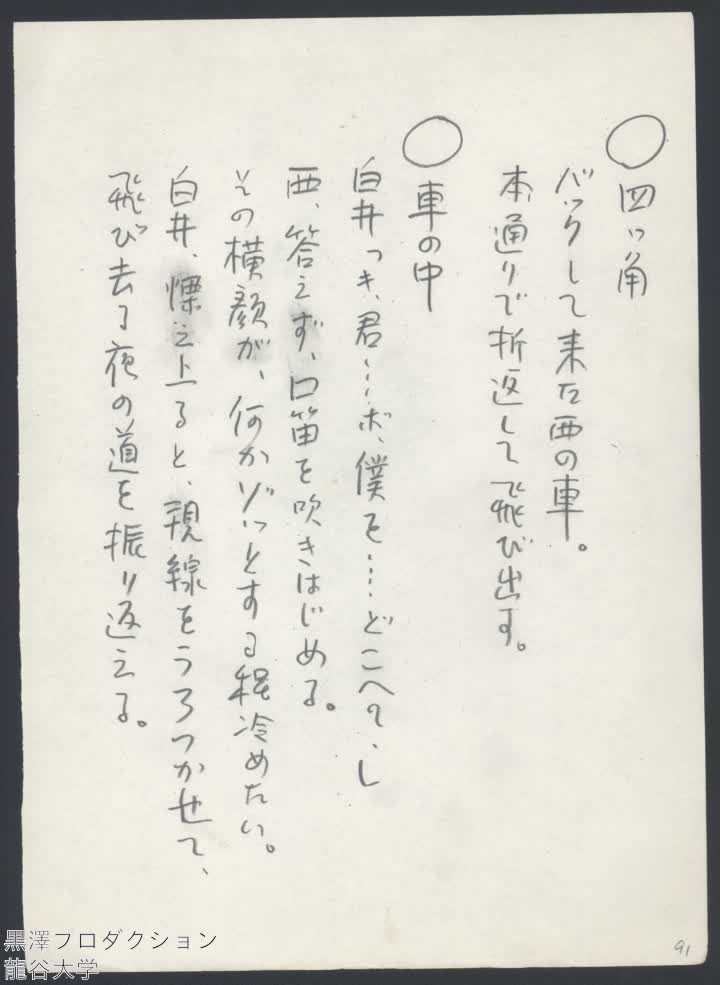 ○四ッ角
バックして来た西の車。
本通りで折返して飛び出す。
○車の中
白井「き、君……ボ、僕を……どこへ?」
西、答えず、口笛を吹きはじめる。
その横顔が、何かゾッとする程冷めたい。
白井、慄え上ると、視線をうろつかせて、
飛び去る夜の道を振り返える。
91
黒澤プロダクション
龍谷大学